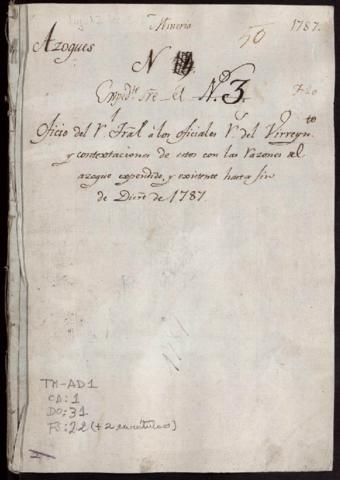 Mineria
1787.
50
Azogues
N
Expedte sre el No 3.
Oficio del Tral â los oficiales Rs del Virreynto
y contextaciones de estos con las razones del
azogue expendido, y existente hasta fin
de Dicre de 1787.
1787
TM-AD1
CA: 1
DO: 31
FS: 22 (+ 2 carátulas)